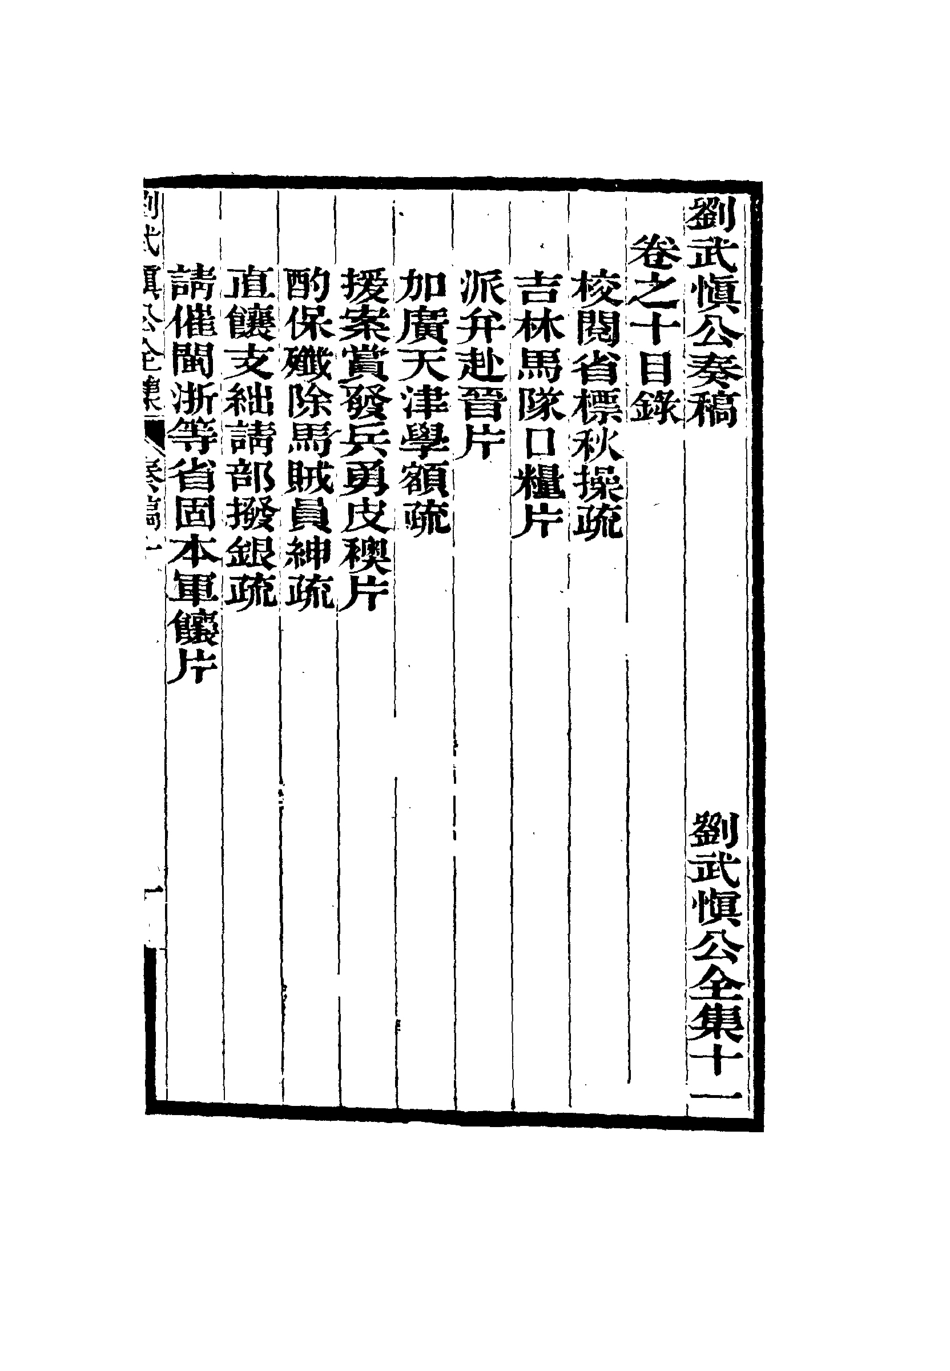 劉武愼公奏稿
劉武愼公全集十一
卷之十目錄
校閱省標秋操疏
吉林馬隊口糧片
派弁赴晉片
加廣天津學額疏
援案賞發兵勇皮襖片
酌保殲除馬賊員紳疏
直饟支絀請部撥銀疏
請催閩浙等省固本軍饟片
劉武愼公全集
奏稿十
一